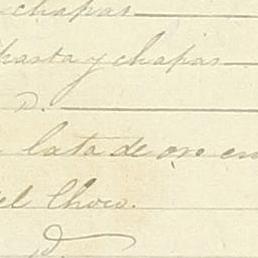 chapas
pasta y chapas
D.
lata de oro en
el Choco.